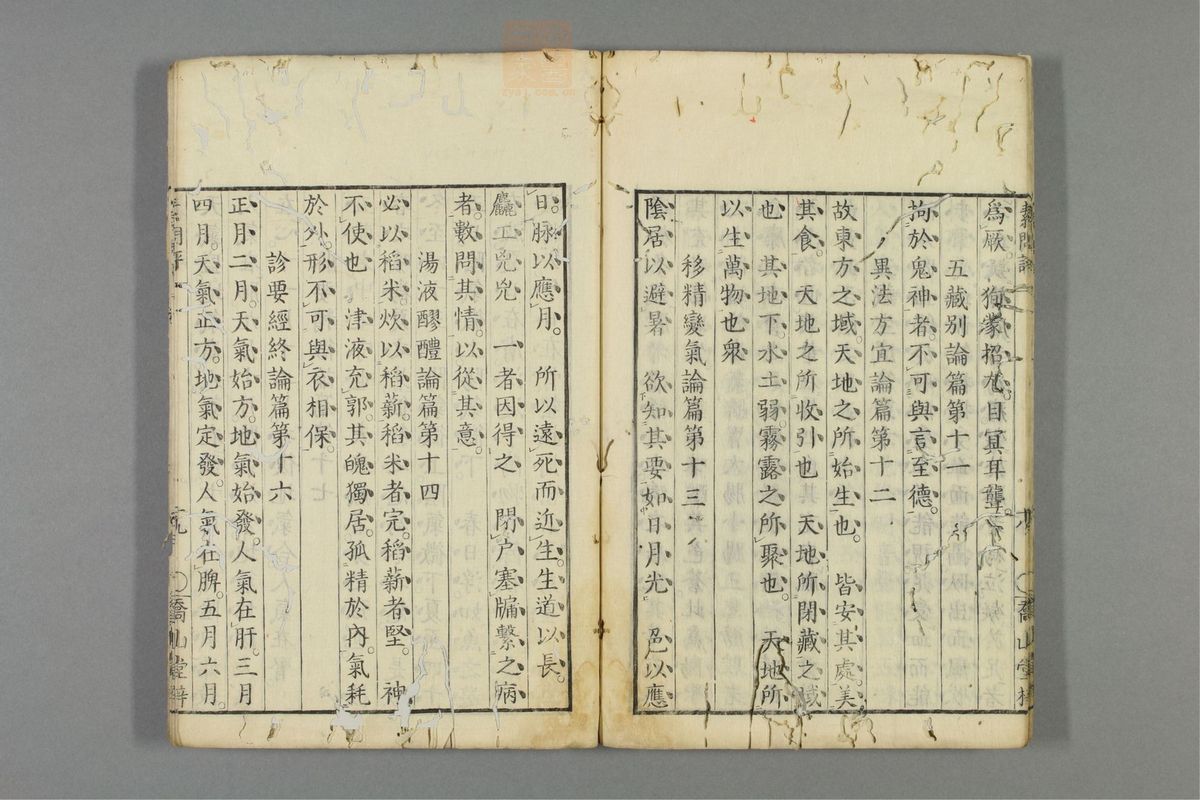 為厥徇蒙招尤目冥耳聾
五藏别論篇第十一
拘於鬼神者不可與言至德
異法方宜論篇第十二
故東方之域天地之所始生也 皆安其處美
其食 天地之所收引也 天地所閉藏之域
也 其地下水土弱霧露之所聚也 天地所
以生萬物也衆
移精變氣論篇第十三
陰居以避暑 欲知其要如日月光 色以應
日脉以應月 所以遠死而近生生道以長
麤工兇兇 一者因得之 閉户塞牖繫之病
者數問其情以從其意
湯液醪醴論篇第十四
必以稻米炊以稻薪稻米者完稻薪者堅 神
不使也 津液充郭其魄獨居孤精於內氣耗
於外形不可與衣相保
診要經終論篇第十六
正月二月天氣始方地氣始發人氣在肝三月
四月天氣正方地氣定發人氣在脾五月六月
喬山堂
喬山堂